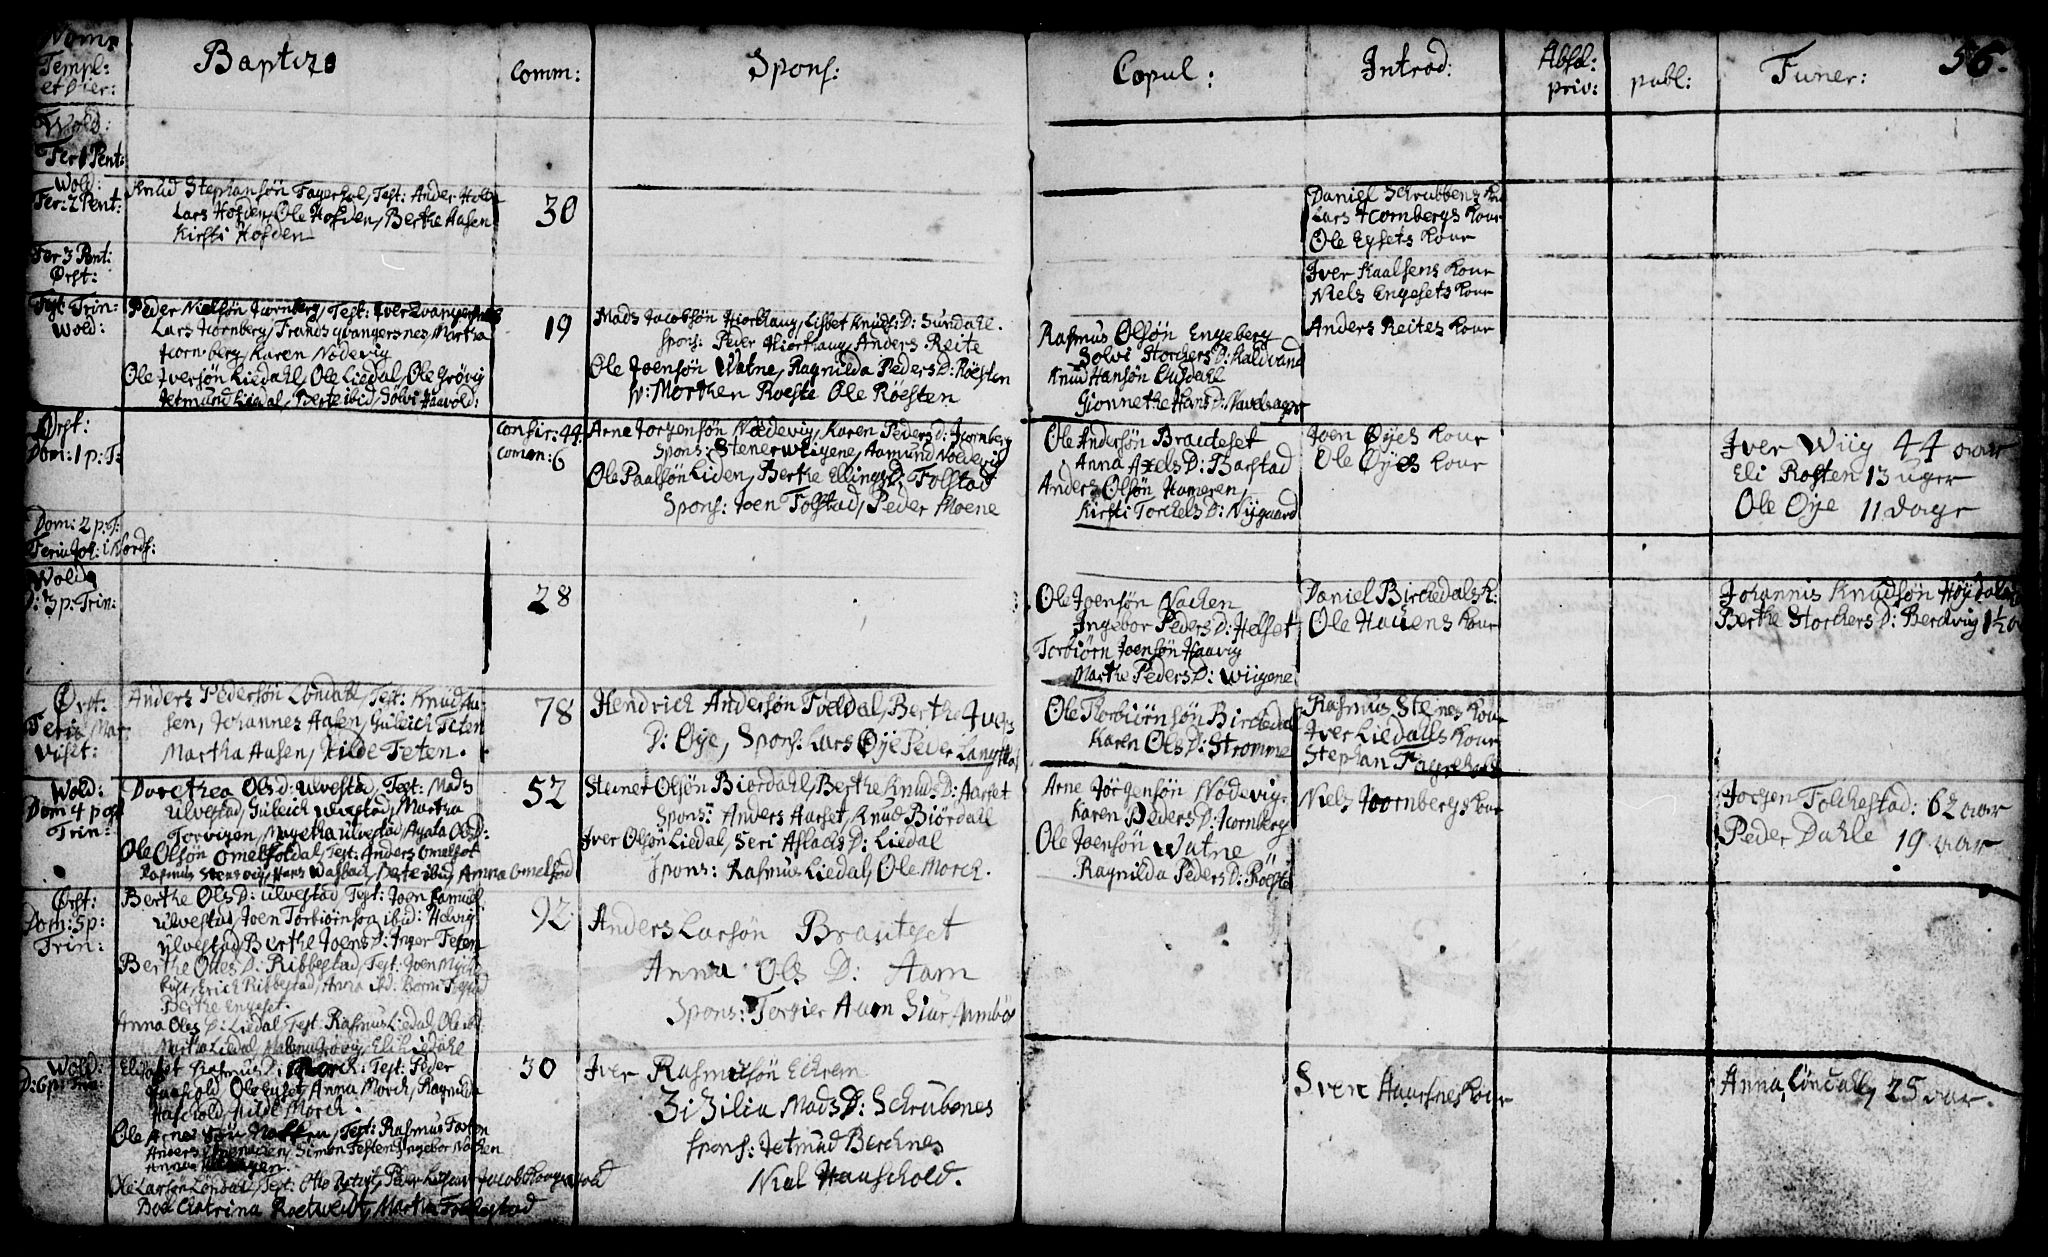 Nom:
Templ:
et Dier:
Baptiz
Comm:
Spons:
Copul:
Introd:
Absol:
priv:
publ:
Funer:
56.
Wold:
Fer 1 Pent:
Wold:
Fer: 2 Pent:
Knud Stephansøn Fagerhol, Test: Ander Holm
Lars Hofden, Ole Hofden, Berthe Aasen
Kirsti Hofden
30
Daniel Schrubbens Ko
Lars Hornbergs Kour
Ole Eysets Kour
Fer 3 Pent:
Ørst:
Iver Kaalsens Kour
Niels Engesets Kour
Fest: Trin:
Wold:
Peder Nielsøn Hornberg, Test: Iver
Lars Hornberg, Trands Martha
Hornberg, Karen Nødevig
Ole Iversøn Liedahl, Ole Liedal, Ole Grøvig
Jetmund Liedal, Berte ibid, Solvi Haavold:
19
Mads Jacobsøn Hiorthaug, Lisbet Knuds D: Sundahl.
Spons: Peder Hiorthaug, Anders Reite
Ole Joensøn Watne, Ragnilda Peders D: Røesten
Sp: Morthen Roeste Ole Røesten
Rasmus Olsøn Engeberg
Solvi Storchers D: Kaldvand
Knud Hansøn
Gionnethe Hans D: Navelsager
Anders Reites Kour
Ørst:
Dom: 1 p: T:
Confir: 44
Comm: 6
Arne Jorgensøn Nødevig, Karen Peders D: Hornberg
Spons: Stener Wiigene, Aamund Nodevig
Ole Paalsøn Liden, Berthe Ellings D: Folstad
Spons: Joen Folstad, Peder Moene
Ole Andersøn Brauteset
Anna Axels D: Barstad
Anders Olsøn Hameren
Kirsti Torchels D: Nygaard
Joen Øyes Kour
Ole Øyes Kour
Iver Wiig 44 aar
Eli Rosten 13 uger
Ole Øye 11 dage
Dom: 2 p: T:
Feria Joh: i Hordf:
Wold
D: 3 p: Trin:
28
Ole Joensøn Nachen
Ingebor Peders D: Helset
Torbiørn Joensøn Haavig
Marthe Peders D: Wiigene
Daniel Birchedals K:
Ole Hauens Kour
Johannis Knudsøn
Berthe Storchers D: Berdvig 1½
Ørst:
Feria Mar:
Visit:
Anders Pedersøn Løndahl, Test: Knud Aa-
sen, Johannes Aasen, Gulleich Teten
Martha Aasen, Hilde Teten.
78
Hendrich Andersøn Folldal, Berthe Ivers
D: Øye, Spons: Lars Øye Peder
Ole Thorbiørnsøn Birchedal
Karen Ols D: Stromme
Rasmus Stenes Kour
Iver Liedahls Kour
Stephan
Wold:
Dom 4 post
Trin:
Dorethea Ols D: Ulvestad, Test: Mads
Ulvestad, Guleich Ulvestad, Martha
Torvigen, Magetha Ulvestad, Ayala Ols D:
Ole Olsøn Omelfotdal, Test: Anders Omelfot
Rasmus Stensvig, Hans Wasbach, Berte ibid, Anna Omelfod
52
Steiner Olsøn Biordahl, Berthe Knuds D: Aarset
Spons: Anders Aarset, Knud Biørdahl
Iver Olsøn Liedal, Seri Aslachs D: Liedal
Spons: Rasmus Liedal, Ole Morch.
Arne Jørgensøn Nodevig.
Karen Peders D: Hornberg
Ole Joensøn Watne
Ragnilda Peders D: Røeste
Niels Hornbergs Kour
Jorgen Folchestad: 62 aar
Peder Dahle 19 aar
Ørst:
Dom: 5 p:
Trin:
Berthe Ols D: Ulvestad Test: Joen Samuel:
Ulvestad Joen Torbiørnsøn ibid: Helvig
Ulvestad, Berthe Joens D: Inger Teten
Berthe Ottes D: Ribbestad, Test: Joen Mykle
bust, Erich Ribbestad, Anna ibd:
Berthe Engeset.
Anna Oles D: Liedal, Test: Rasmus Liedal, Ole ibd:
Martha Liedal, Malena Grøvig, Eli Liedahl
92
Anders Larsøn Brauteset
Anna Ols D: Aam
Spons: Torgier Aam Siur Ambø
Wold:
D: 6 p: Trin:
Elisabet Rasmus D: Morch: Test: Peder
Haaschold, Ole Eyset, Anna Morch, Ragnilda
Haschold, Hilde Morch.
Ole Arnessøn Nachen, Test: Rasmus
Anders Simon Festen, Ingebor Nachen
Anna
Ole Larsøn Løndal, Test:
Martha Folchestad
30
Iver Rasmusøn Echrem
Zizilia Mads D: Schrubenes
Spons: Jetmud Berchnes
Niel Haauschold.
Sver Kour
Anna Løndahl, 25 aar.